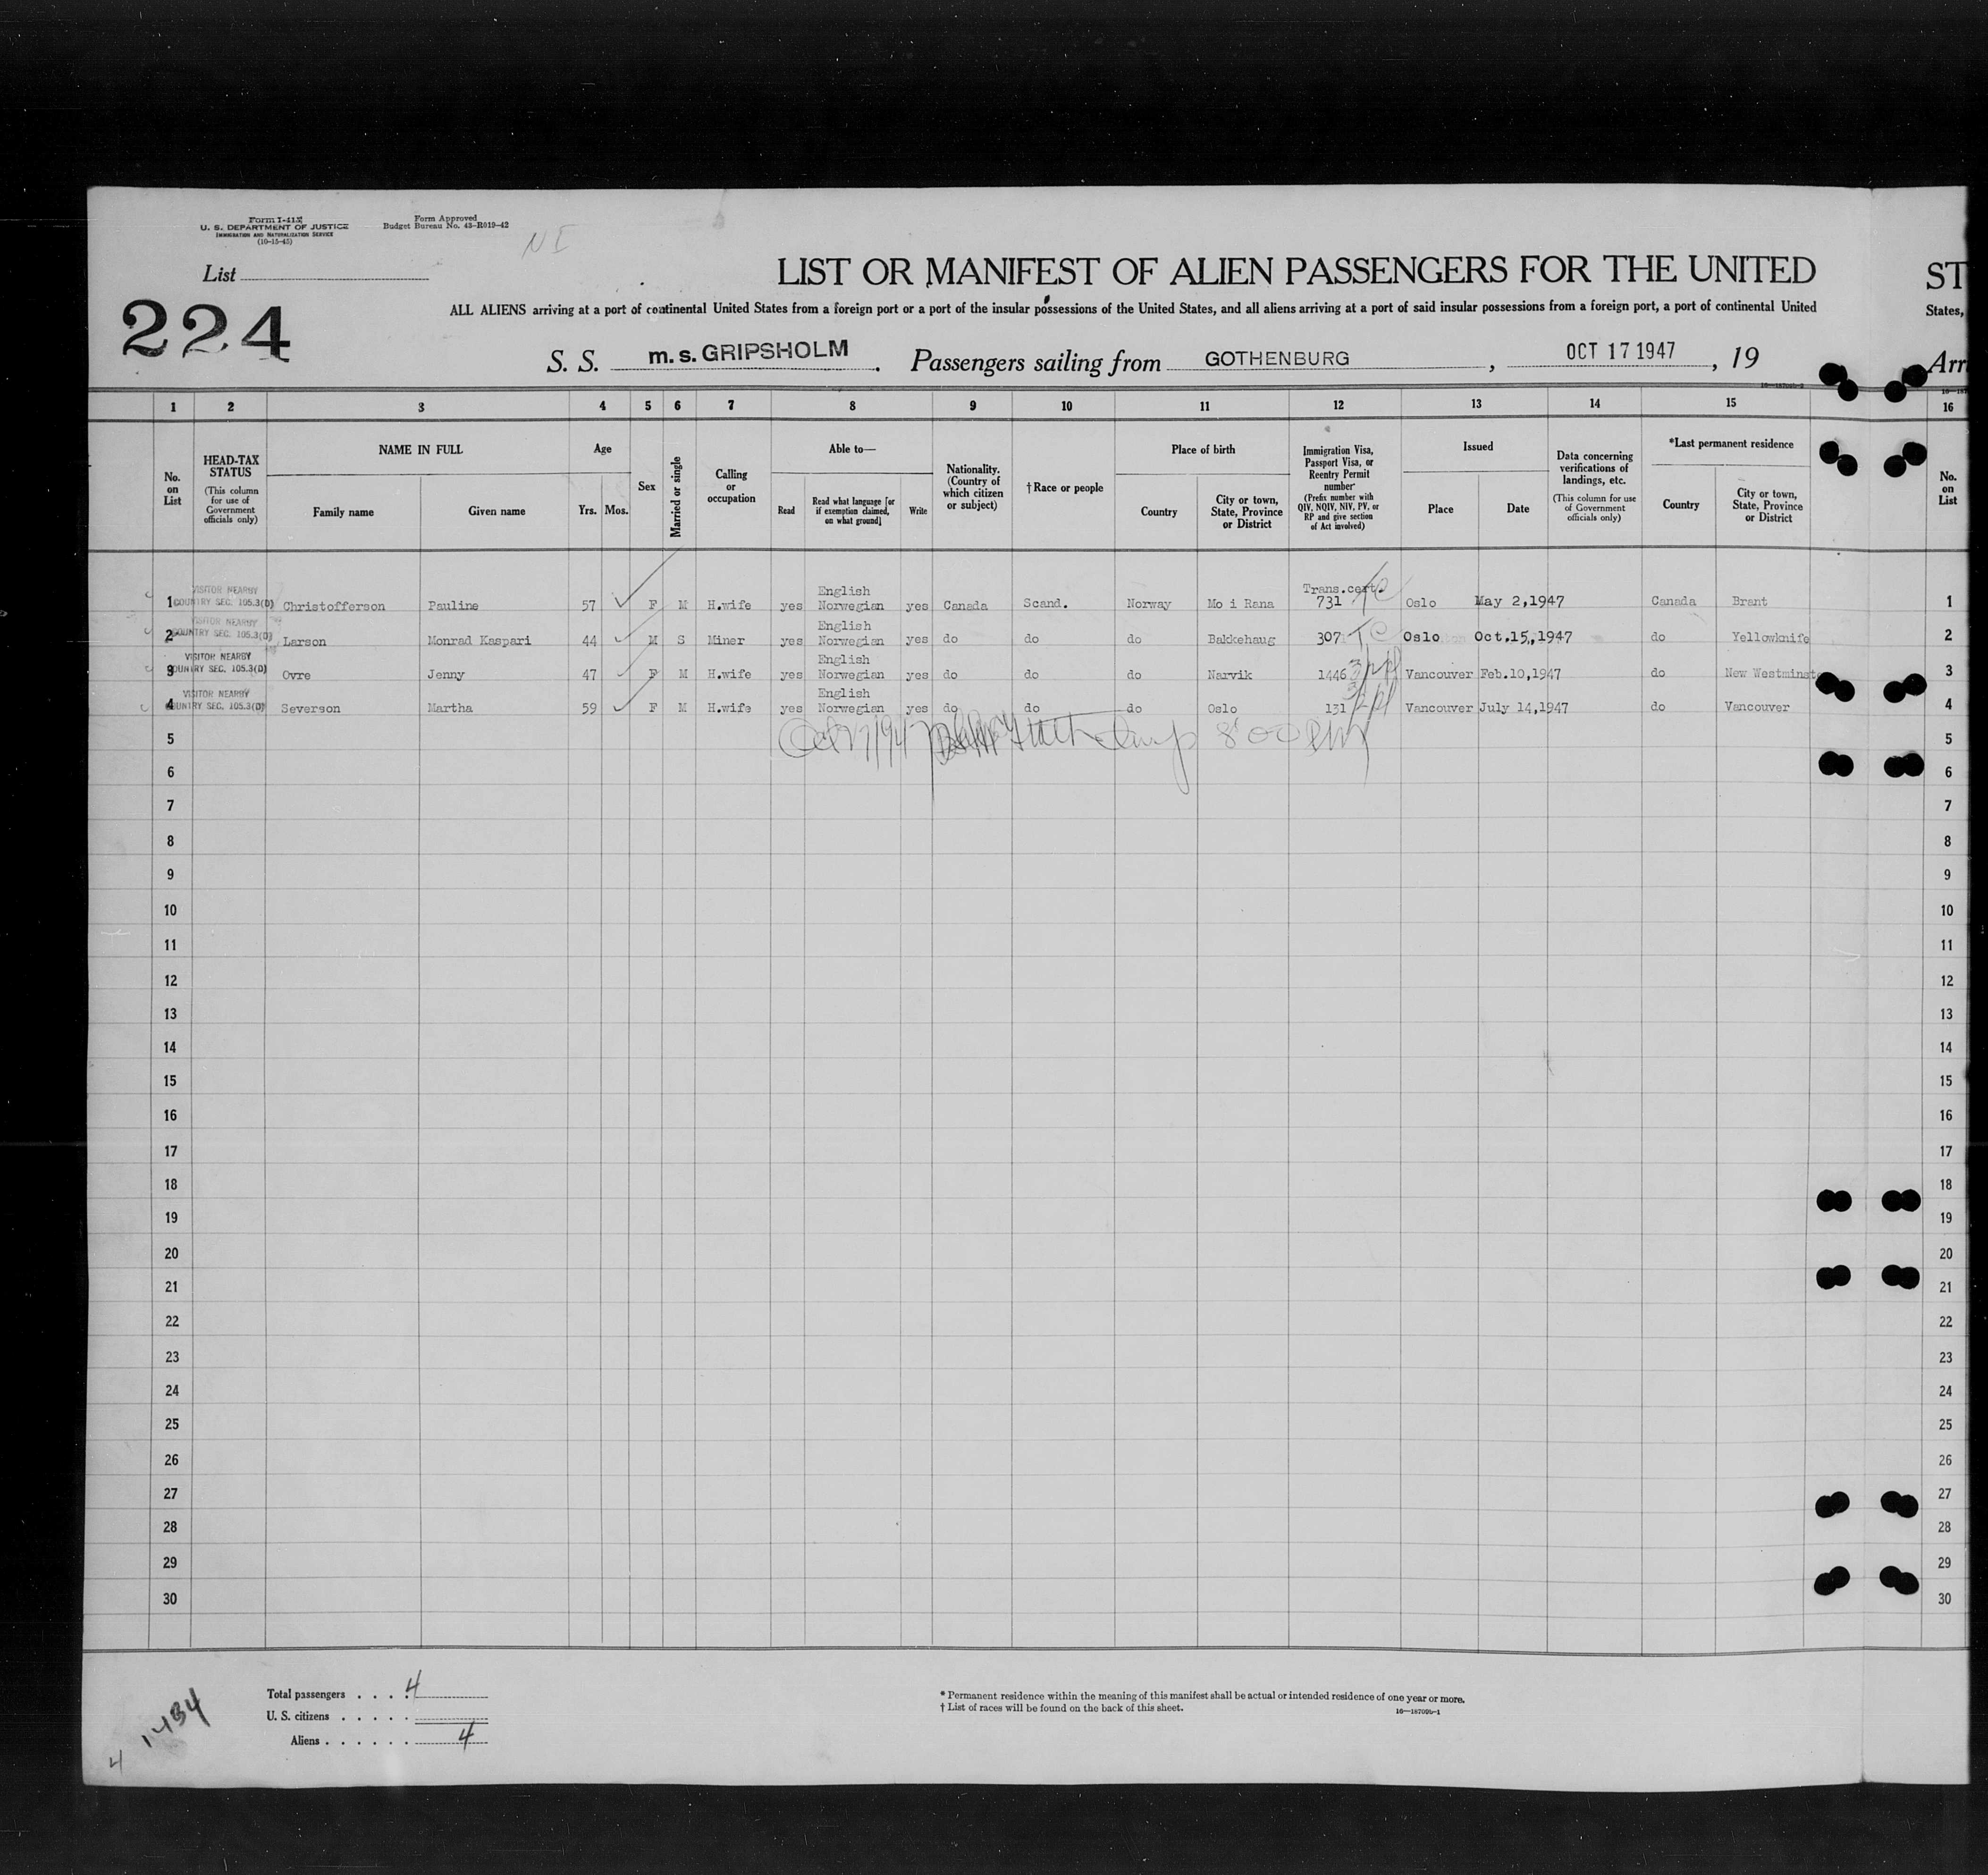 Form I-415
U. S. DEPARTMENT OF JUSTICE
IMMIGRATION AND NATURALIZATION SERVICE
(10-15-45)
Form Approved
Budget Bureau No. 43-R019-42
N I
List
224
LIST OR MANIFEST OF ALIEN PASSENGERS FOR THE UNITED
ST
ALL ALIENS arriving at a port of continental United States from a foreign port or a port of the insular possessions of the United States, and all aliens arriving at a port of said insular possessions from a foreign port, a port of continental United
States,
S. S. m. s. GRIPSHOLM . Passengers sailing from GOTHENBURG , OCT 17 1947 , 19
Arr
1 2 3 4 5 6 7 8 9 10 11 12 13 14 15 16
No. on List
HEAD-TAX STATUS
(This column for use of Government officials only)
NAME IN FULL
Family name
Given name
Age
Yrs. Mos.
Sex
Married or single
Calling or occupation
Able to—
Read
Read what language [or if exemption claimed, on what ground]
Write
Nationality. (Country of which citizen or subject)
†Race or people
Place of birth
Country
City or town, State, Province or District
Immigration Visa, Passport Visa, or Reentry Permit number
(Prefix number with QIV, NQIV, NIV, PV, or RP and give section of Act involved)
Issued
Place
Date
Data concerning verifications of landings, etc.
(This column for use of Government officials only)
*Last permanent residence
Country
City or town, State, Province or District
No. on List
VISITOR NEARBY English Trans.cert.
1 COUNTRY SEC. 105.3(D) Christofferson Pauline 57 F M H.wife yes Norwegian yes Canada Scand. Norway Mo i Rana 731 TC Oslo May 2,1947 Canada Brant 1
VISITOR NEARBY English
2 COUNTRY SEC. 105.3(D) Larson Monrad Kaspari 44 M S Miner yes Norwegian yes do do do Bakkehaug 307 TC Oslo Oct.15,1947 do Yellowknife 2
VISITOR NEARBY English
3 COUNTRY SEC. 105.3(D) Ovre Jenny 47 F M H.wife yes Norwegian yes do do do Narvik 1446 Vancouver Feb.10,1947 do New Westminst 3
VISITOR NEARBY English
4 COUNTRY SEC. 105.3(D) Severson Martha 59 F M H.wife yes Norwegian yes do do do Oslo 131 Vancouver July 14,1947 do Vancouver 4
5 8:00 PM 5
6 6
7 7
8 8
9 9
10 10
11 11
12 12
13 13
14 14
15 15
16 16
17 17
18 18
19 19
20 20
21 21
22 22
23 23
24 24
25 25
26 26
27 27
28 28
29 29
30 30
Total passengers . . . . 4
U. S. citizens . . . . .
Aliens . . . . . . 4
1434
4
* Permanent residence within the meaning of this manifest shall be actual or intended residence of one year or more.
† List of races will be found on the back of this sheet.
16—18709b-1